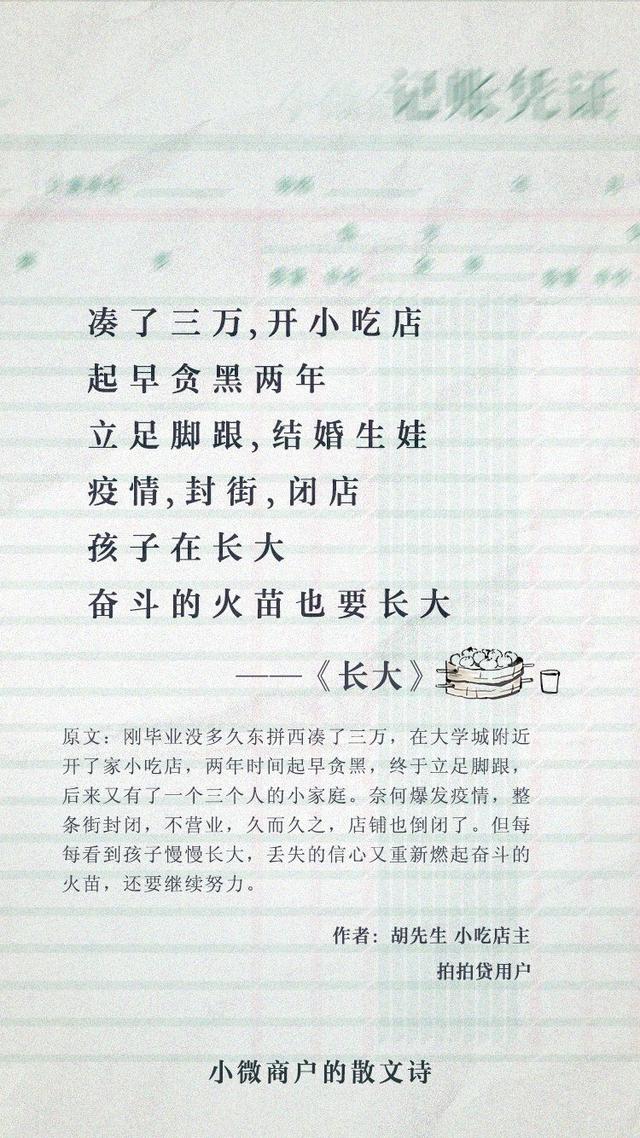 记账凭证
凑了三万,开小吃店
起早贪黑两年
立足脚跟,结婚生娃
疫情,封街,闭店
孩子在长大
奋斗的火苗也要长大
——《长大》
原文：刚毕业没多久东拼西凑了三万，在大学城附近
开了家小吃店，两年时间起早贪黑，终于立足脚跟，
后来又有了一个三个人的小家庭。奈何爆发疫情，整
条街封闭，不营业，久而久之，店铺也倒闭了。但每
每看到孩子慢慢长大，丢失的信心又重新燃起奋斗的
火苗，还要继续努力。
作者：胡先生 小吃店主
拍拍贷用户
小微商户的散文诗